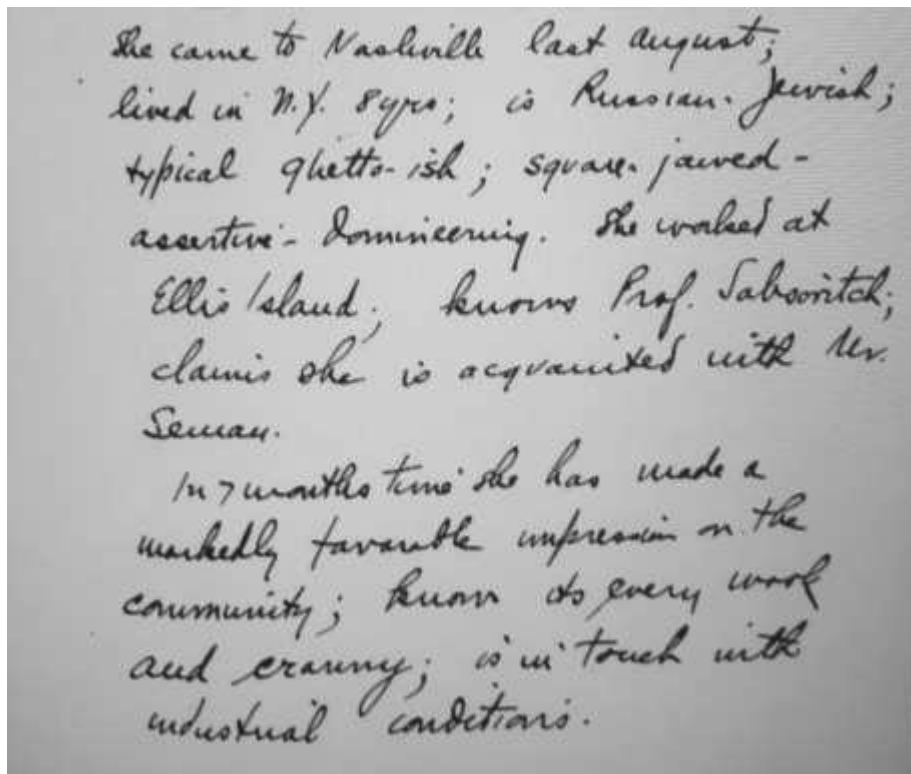 She came to Nashville last august;
lived in N.Y. 8 yrs; is Russian-Jewish;
typical ghetto-ish; square-jawed-
assertive-domineering. She worked at
Ellis Island; knows Prof. Sabsovitch;
claims she is acquainted with Mr.
Seman.
In 7 months time she has made a
markedly favorable impression on the
community; knows its every nook
and cranny; is in touch with
industrial conditions.